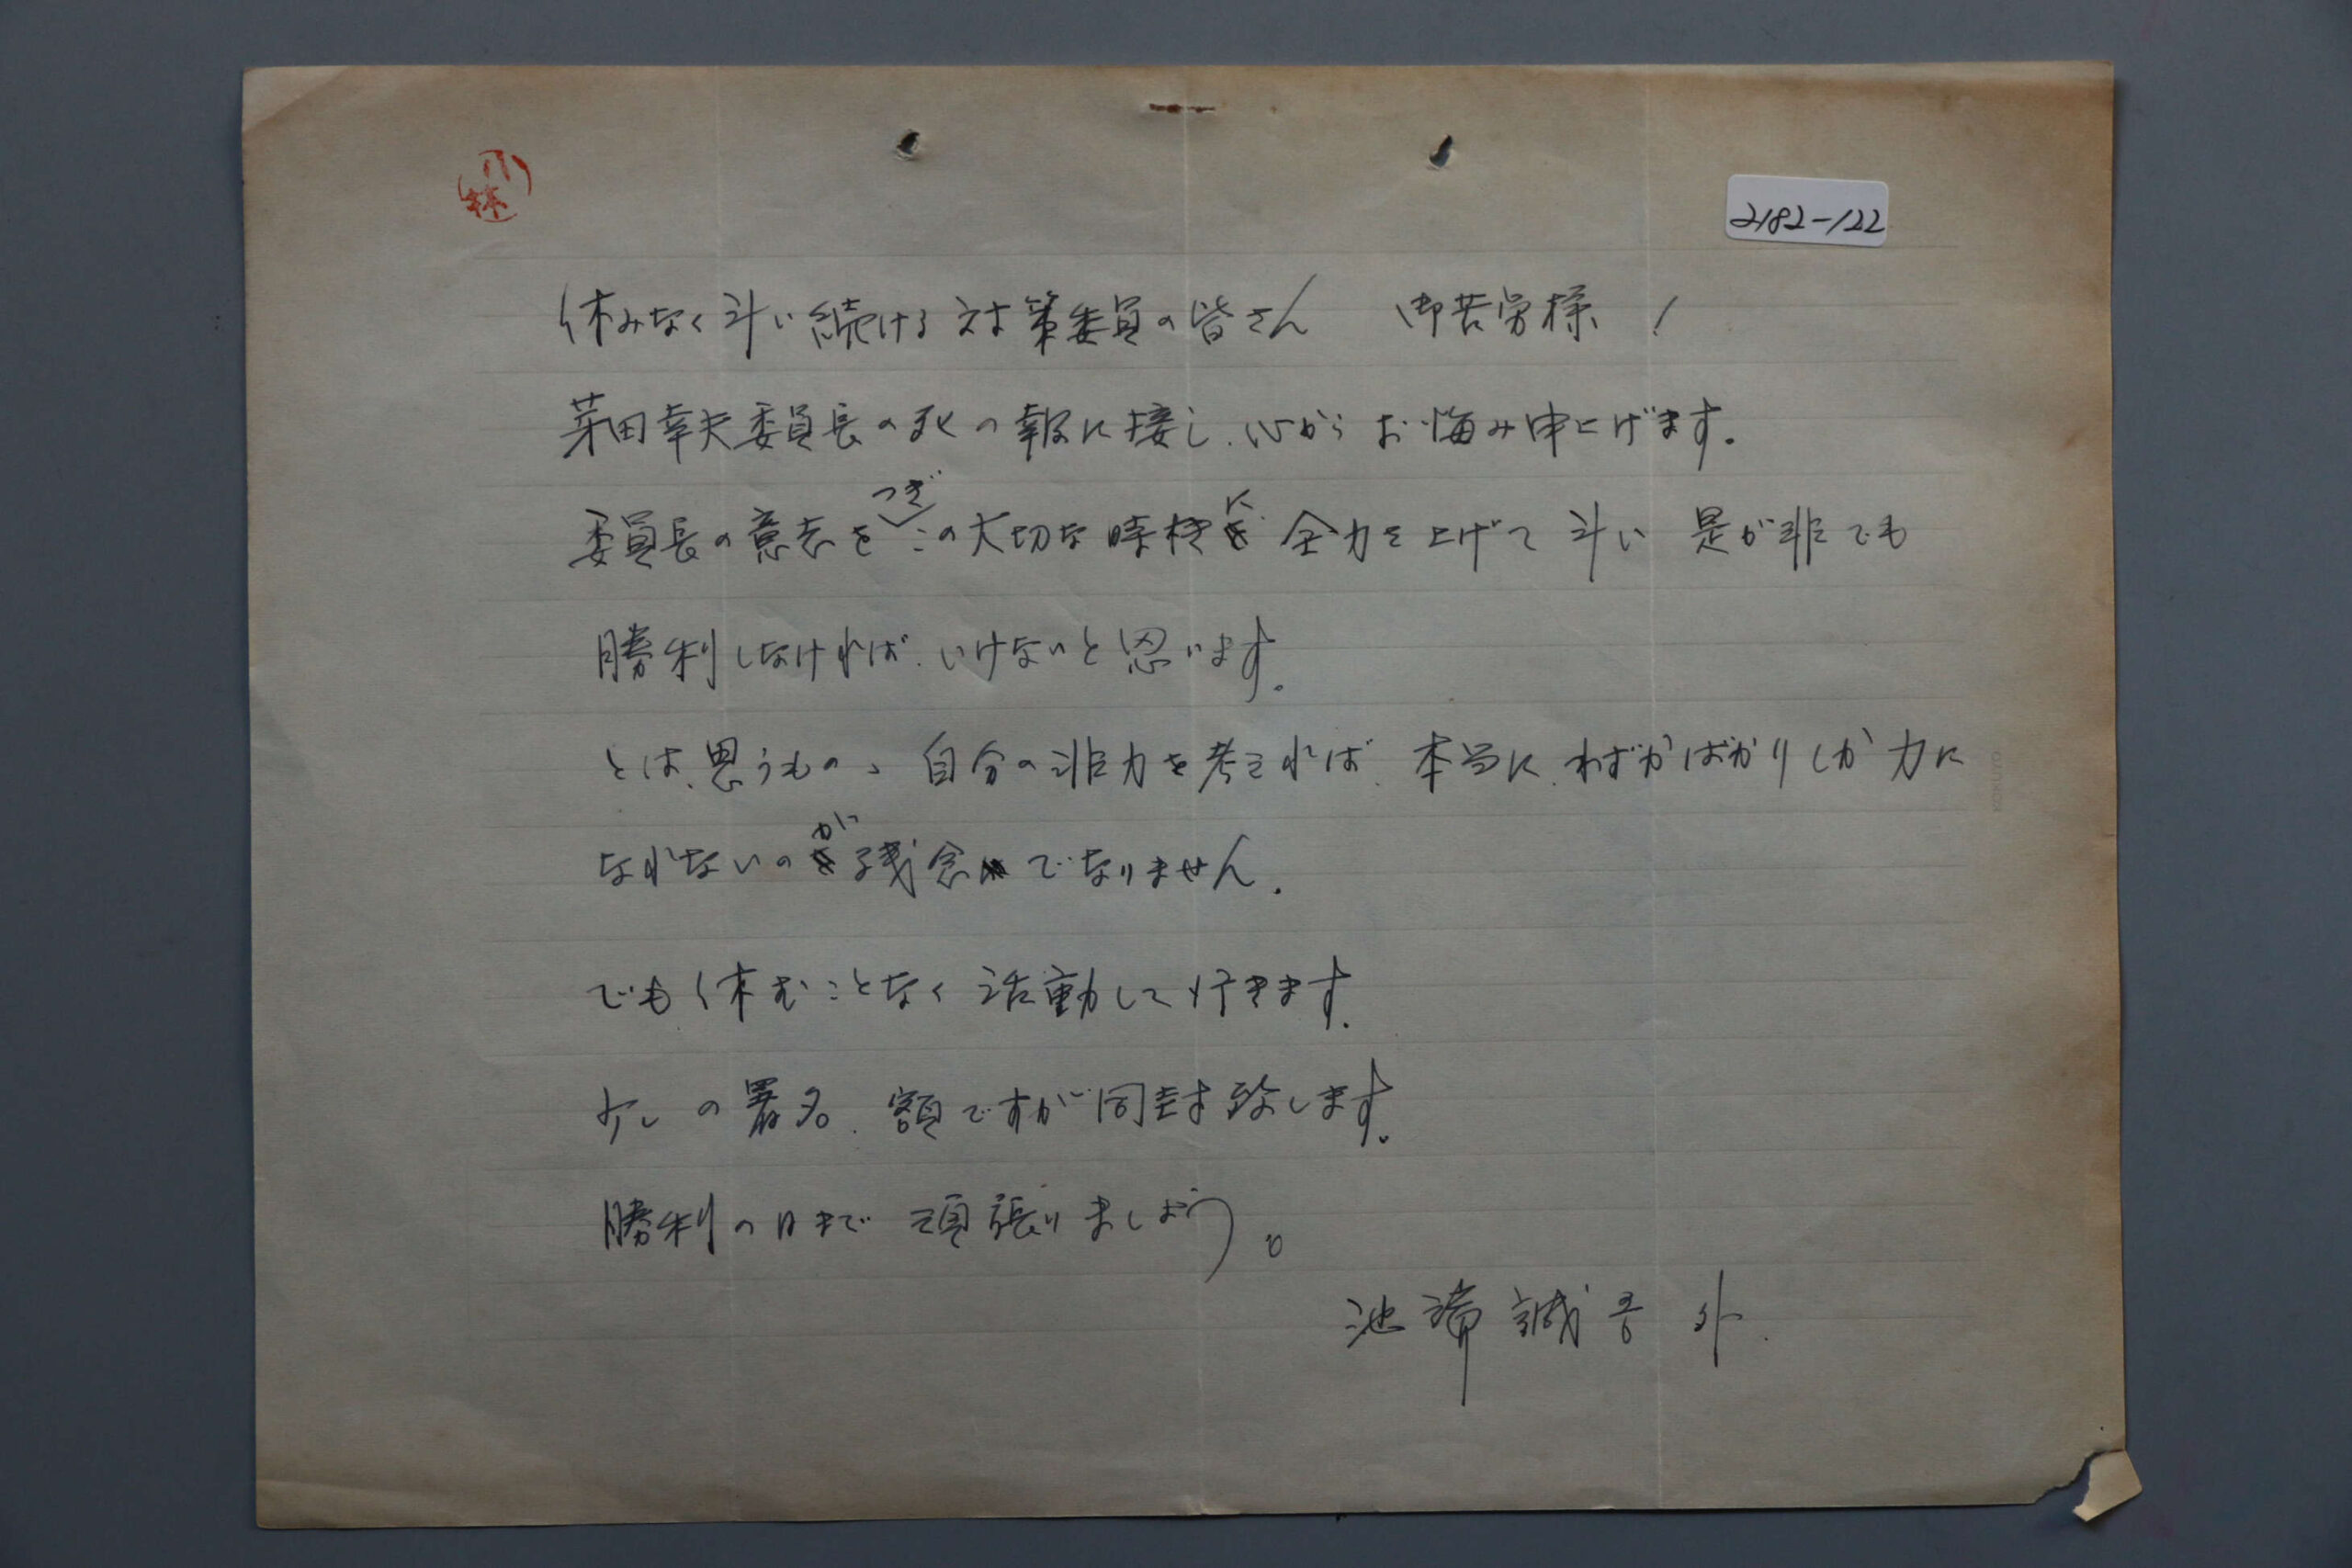 小林
2182-122
休みなく斗い続ける対策委員の皆さん 御苦労様!
茅田幸夫委員長の死の報に接し、心からお悔み申上げます。
委員長の意志をつぎこの大切な時機に全力を上げて斗い 是が非でも
勝利しなければ、いけないと思います。
とは、思うものゝ自分の非力を考えれば、本当に、わずかばかりしか力に
なれないのが残念でなりません。
でも休むことなく活動して行きます。
少しの署名、額ですが同封致します。
勝利の日まで頑張りましょう。
池 誠吾 外